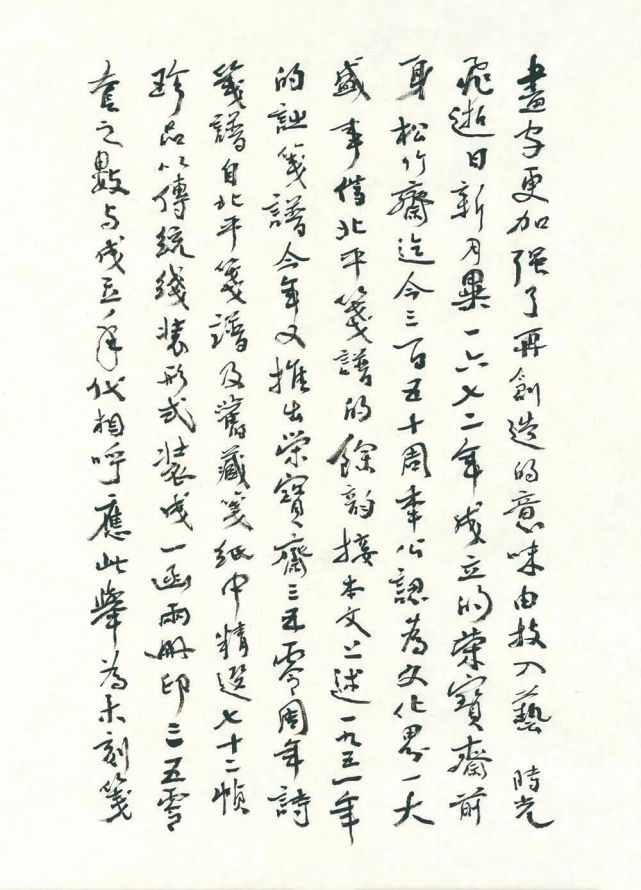 畫家更加强了再創造的意味由技入藝 時光
飛逝日新月異一六七二年成立的榮寶齋前
身松竹齋迄今三百五十周年公認為文化界一大
盛事借北平箋譜的餘韵接本文上述一九五一年
的詩箋譜今年又推出榮寶齋三五零周年詩
箋譜自北平箋譜及舊藏箋紙中精選七十二幀
珍品以傳統綫裝形式裝成一函兩册印三五零
套之數与成立年代相呼應此舉為木刻箋